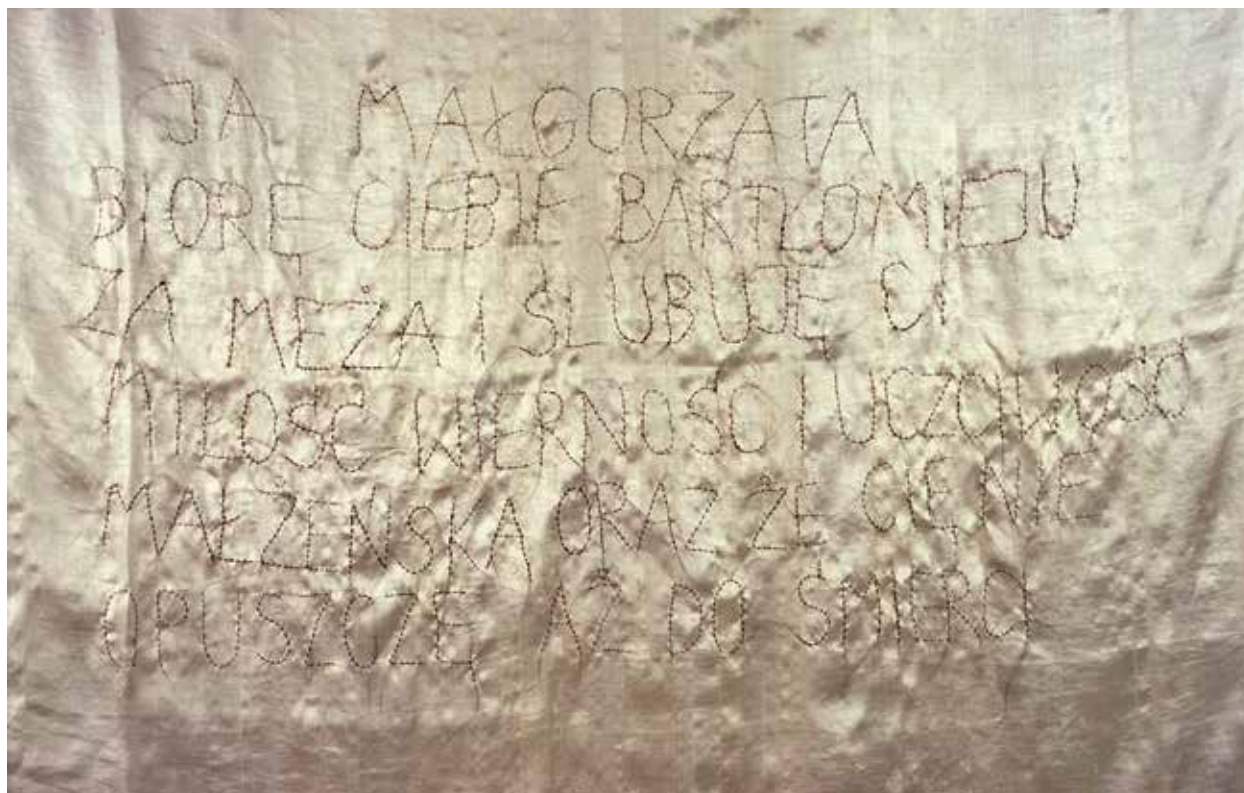 JA MAŁGORZATA
BIORĘ CIEBIE BARTŁOMIEJU
ZA MĘŻA I ŚLUBUJĘ CI
MIŁOŚĆ WIERNOŚĆ I UCZCIWOŚĆ
MAŁŻEŃSKĄ ORAZ ŻE CIĘ NIE
OPUSZCZĘ AŻ DO ŚMIERCI